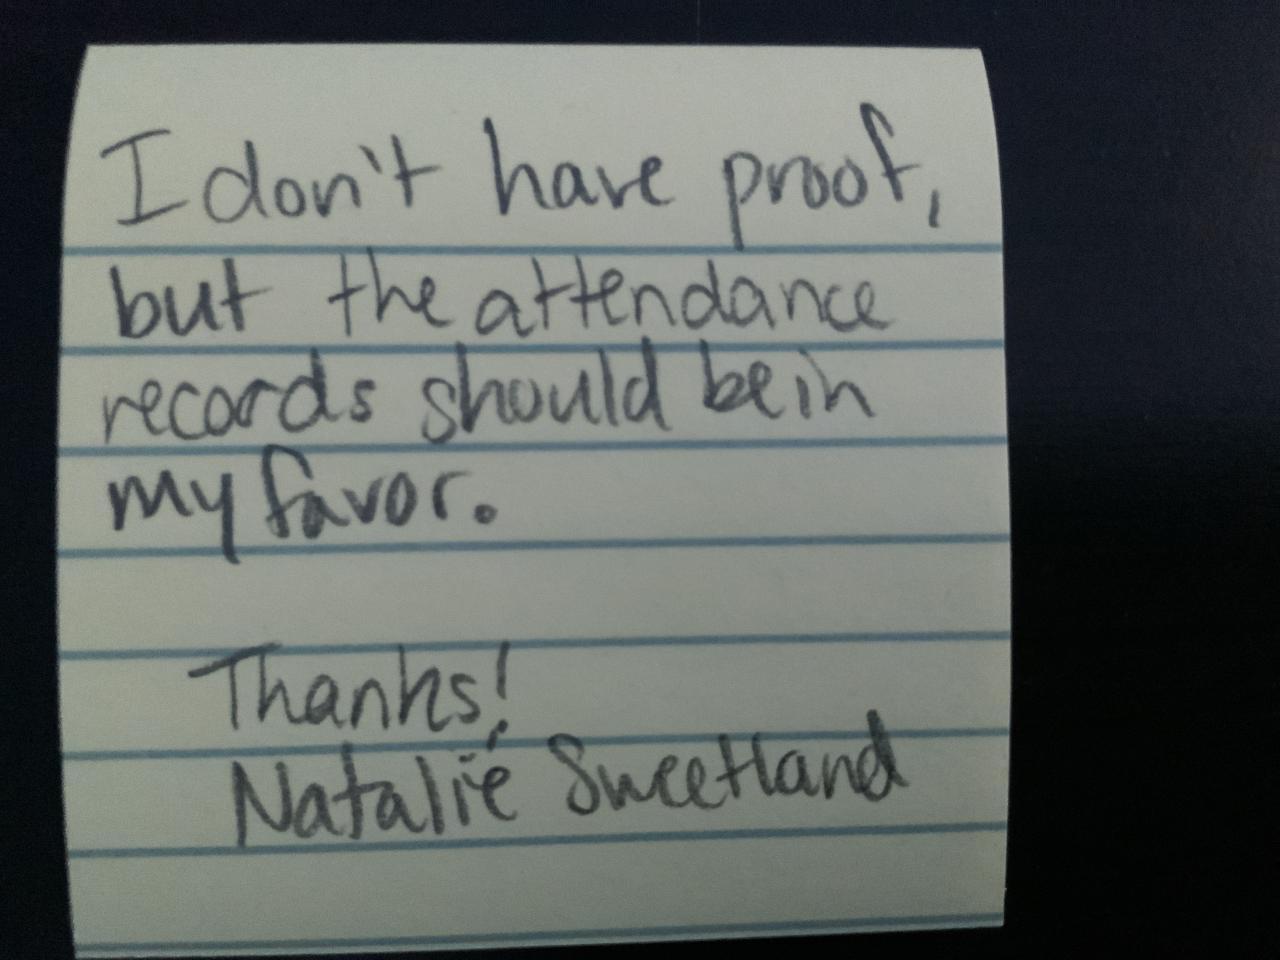 I don't have proof,
but the attendance
records should be in
my favor.
Thanks!
Natalie Sweetland